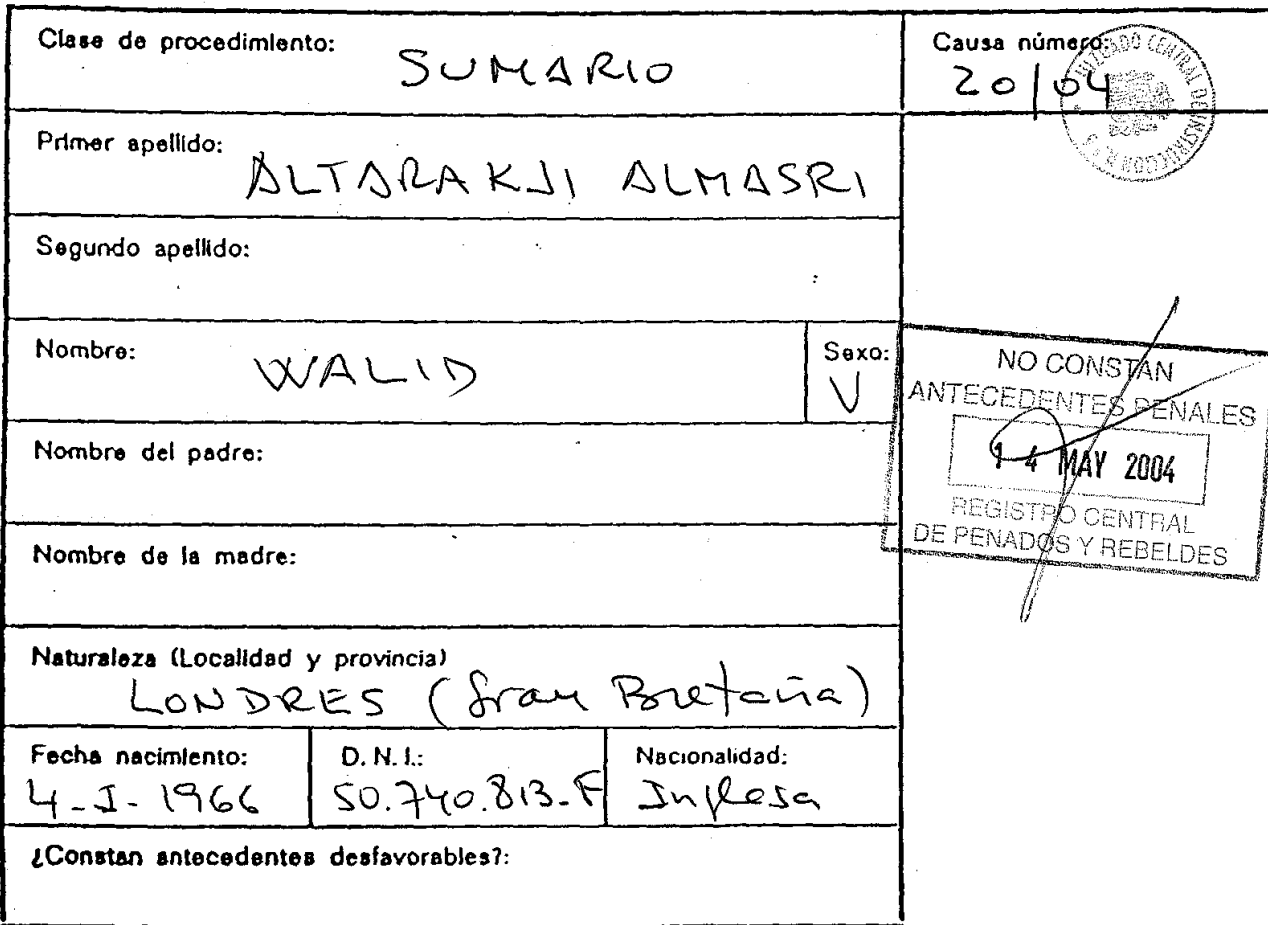 Clase de procedimiento:
SUMARIO
Causa número:
20/04
JUZGADO CENTRAL DE INSTRUCCION
Primer apellido:
ALTARAKJI ALMASRI
Segundo apellido:
Nombre:
WALID
Sexo:
V
NO CONSTAN
ANTECEDENTES PENALES
14 MAY 2004
REGISTRO CENTRAL
DE PENADOS Y REBELDES
Nombre del padre:
Nombre de la madre:
Naturaleza (Localidad y provincia)
LONDRES (Gran Bretaña)
Fecha nacimiento:
4-I-1966
D.N.I.:
50.740.813-F
Nacionalidad:
Inglesa
¿Constan antecedentes desfavorables?: